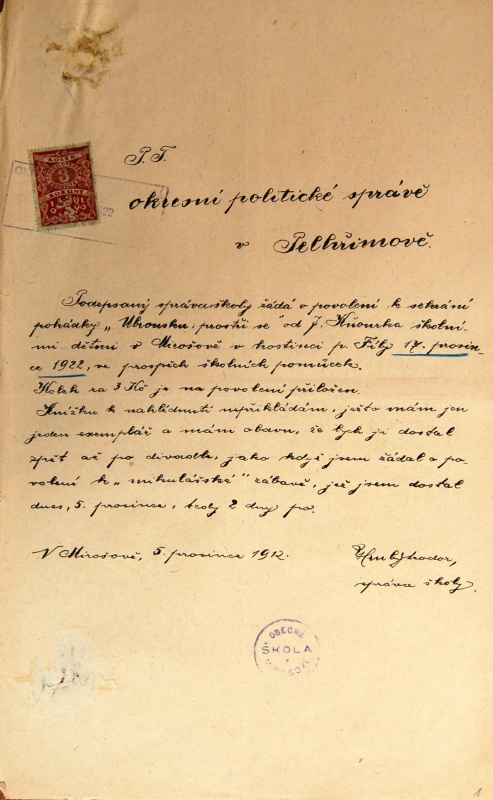 KOLEK
3
KORUNY
22
P. T.
okresní politické správě
v Pelhřimově.
Podepsaný správa školy žádá o povolení k sehrání
pohádky „Ubrousku, prostři se" od J. Kňourka školní-
mi dětmi v Mirošově v hostinci p. Fily 17. prosin-
ce 1922, ve prospěch školních pomůcek.
Kolek za 3 Kč je na povolení přiložen.
Knížku k nahlédnutí nepřikládám, ješto mám jen
jeden exemplář a mám obavu, že bych ji dostal
zpět až po divadle, jako když jsem žádal o po-
volení k „mikulášské" zábavě, jež jsem dostal
dnes, 5. prosince, tedy 2 dny po.
V Mirošově, 5. prosince 1912.
správa školy.
OBECNÁ
ŠKOLA
V
MIROŠOVĚ
1